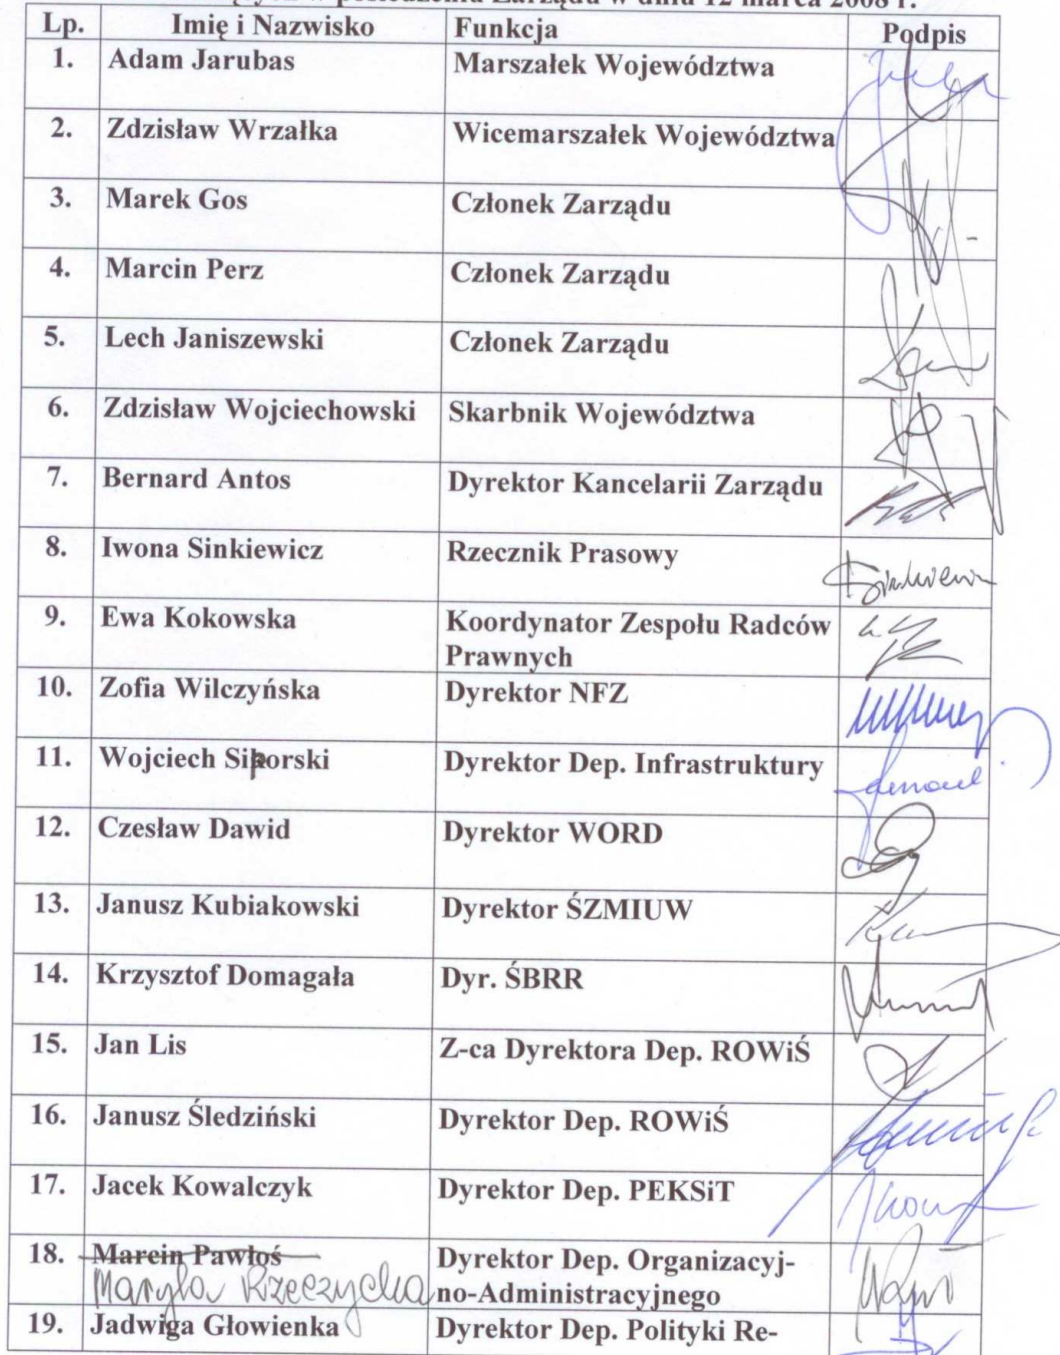 posiedzeniu Zarządu w dniu 12 marca 2008 r.
Lp. Imię i Nazwisko Funkcja Podpis
1. Adam Jarubas Marszałek Województwa
2. Zdzisław Wrzałka Wicemarszałek Województwa
3. Marek Gos Członek Zarządu
4. Marcin Perz Członek Zarządu
5. Lech Janiszewski Członek Zarządu
6. Zdzisław Wojciechowski Skarbnik Województwa
7. Bernard Antos Dyrektor Kancelarii Zarządu
8. Iwona Sinkiewicz Rzecznik Prasowy
9. Ewa Kokowska Koordynator Zespołu Radców
Prawnych
10. Zofia Wilczyńska Dyrektor NFZ
11. Wojciech Siporski Dyrektor Dep. Infrastruktury
12. Czesław Dawid Dyrektor WORD
13. Janusz Kubiakowski Dyrektor ŚZMIUW
14. Krzysztof Domagała Dyr. ŚBRR
15. Jan Lis Z-ca Dyrektora Dep. ROWiŚ
16. Janusz Śledziński Dyrektor Dep. ROWiŚ
17. Jacek Kowalczyk Dyrektor Dep. PEKSiT
18. Marcin Pawłoś Dyrektor Dep. Organizacyj-
Maryla Rzeczycka no-Administracyjnego
19. Jadwiga Głowienka Dyrektor Dep. Polityki Re-